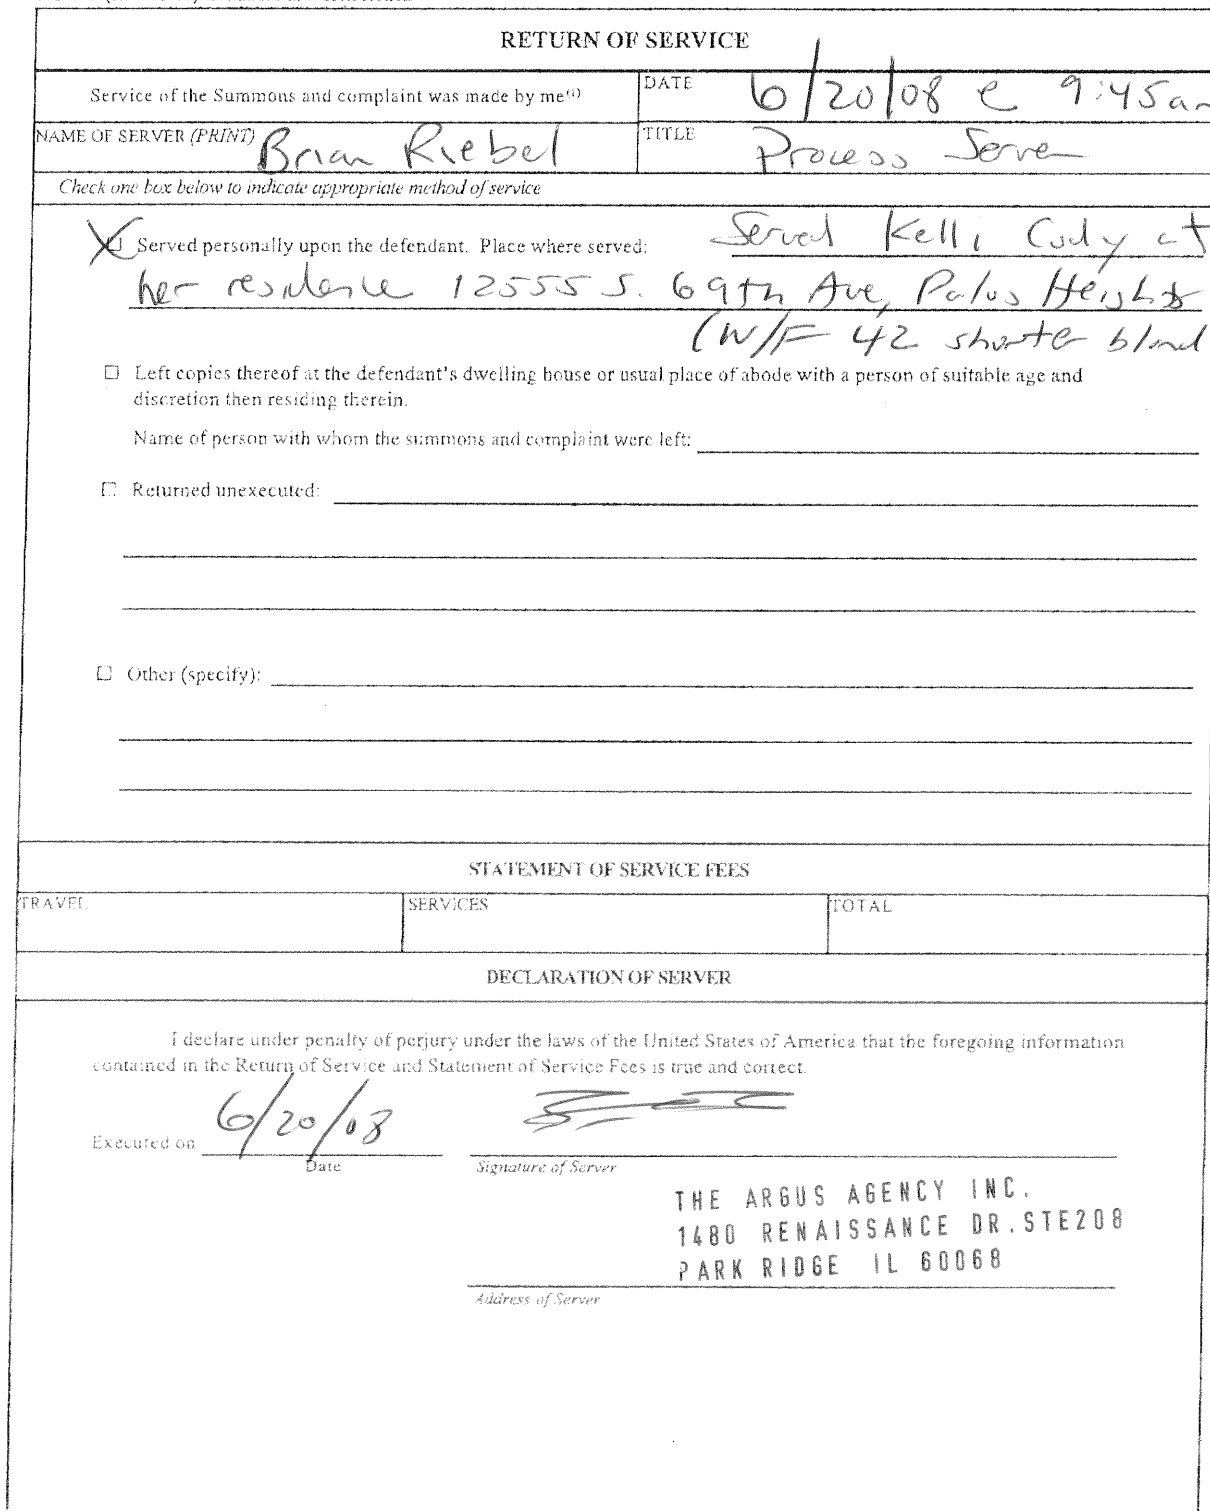 RETURN OF SERVICE
Service of the Summons and complaint was made by me(1)
DATE 6/20/08 @ 9:45am
NAME OF SERVER (PRINT) Brian Riebel
TITLE Process Server
Check one box below to indicate appropriate method of service
☒ Served personally upon the defendant. Place where served: Served Kelli Cody at
her residence 12555 S. 69th Ave, Palos Heights
(W/F 42 shorter blond
☐ Left copies thereof at the defendant's dwelling house or usual place of abode with a person of suitable age and
discretion then residing therein.
Name of person with whom the summons and complaint were left:
☐ Returned unexecuted:
☐ Other (specify):
STATEMENT OF SERVICE FEES
TRAVEL
SERVICES
TOTAL
DECLARATION OF SERVER
I declare under penalty of perjury under the laws of the United States of America that the foregoing information
contained in the Return of Service and Statement of Service Fees is true and correct.
Executed on 6/20/08
Date
Signature of Server
THE ARGUS AGENCY INC.
1480 RENAISSANCE DR.STE208
PARK RIDGE IL 60068
Address of Server